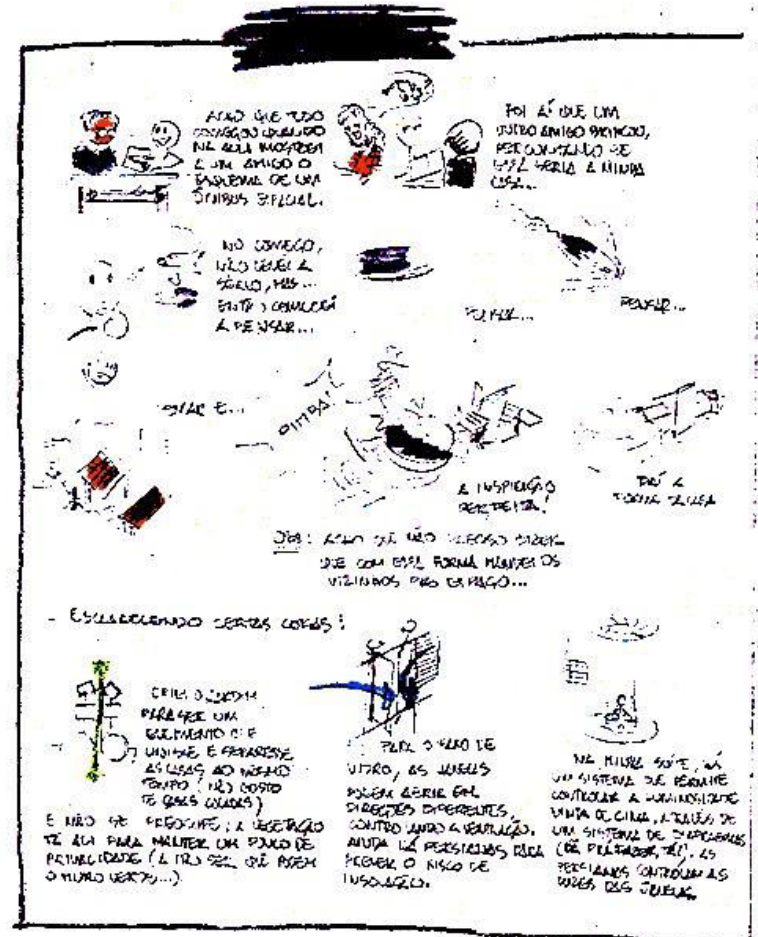 ACHO QUE TUDO
COMEÇOU QUANDO
NA AULA MOSTREI
A UM AMIGO O
ESQUEMA DE UM
ÔNIBUS ESPACIAL.
FOI AÍ QUE UM
OUTRO AMIGO BRINCOU,
PERGUNTANDO SE
ESSA SERIA A MINHA
CASA...
NO COMEÇO,
NÃO LEVEI A
SÉRIO, MAS...
ENTÃO COMECEI
A PENSAR...
PENSAR...
PENSAR...
E...
PIMBA!
A INSPIRAÇÃO
PERFEITA!
A
FORMA
OBS: ACHO QUE NÃO PRECISO DIZER
QUE COM ESSA FORMA MANDEI OS
VIZINHOS PRO ESPAÇO...
- ESCLARECENDO CERTAS COISAS:
CRIEI O JARDIM
PARA SER UM
ELEMENTO QUE
UNISSE E SEPARASSE
AS CASAS AO MESMO
TEMPO (NÃO GOSTO
DE CASAS COLADAS)
E NÃO SE PREOCUPE: A VEGETAÇÃO
TÁ ALI PARA MANTER UM POUCO DE
PRIVACIDADE (A NÃO SER QUE PODEM
O MURO VERDE...).
PARA O PANO DE
VIDRO, AS JANELAS
PODEM ABRIR EM
DIREÇÕES DIFERENTES,
CONTROLANDO A VENTILAÇÃO.
AINDA HÁ PERSIANAS PARA
PREVER O RISCO DE
INSOLAÇÃO.
NA MINHA SUÍTE, HÁ
UM SISTEMA QUE PERMITE
CONTROLAR A LUMINOSIDADE
VINDA DE CIMA, ATRAVÉS DE
UM SISTEMA DE
(DÁ PRA FAZER, TÁ!). AS
PERSIANAS CONTROLAM AS
LUZES DAS JANELAS.